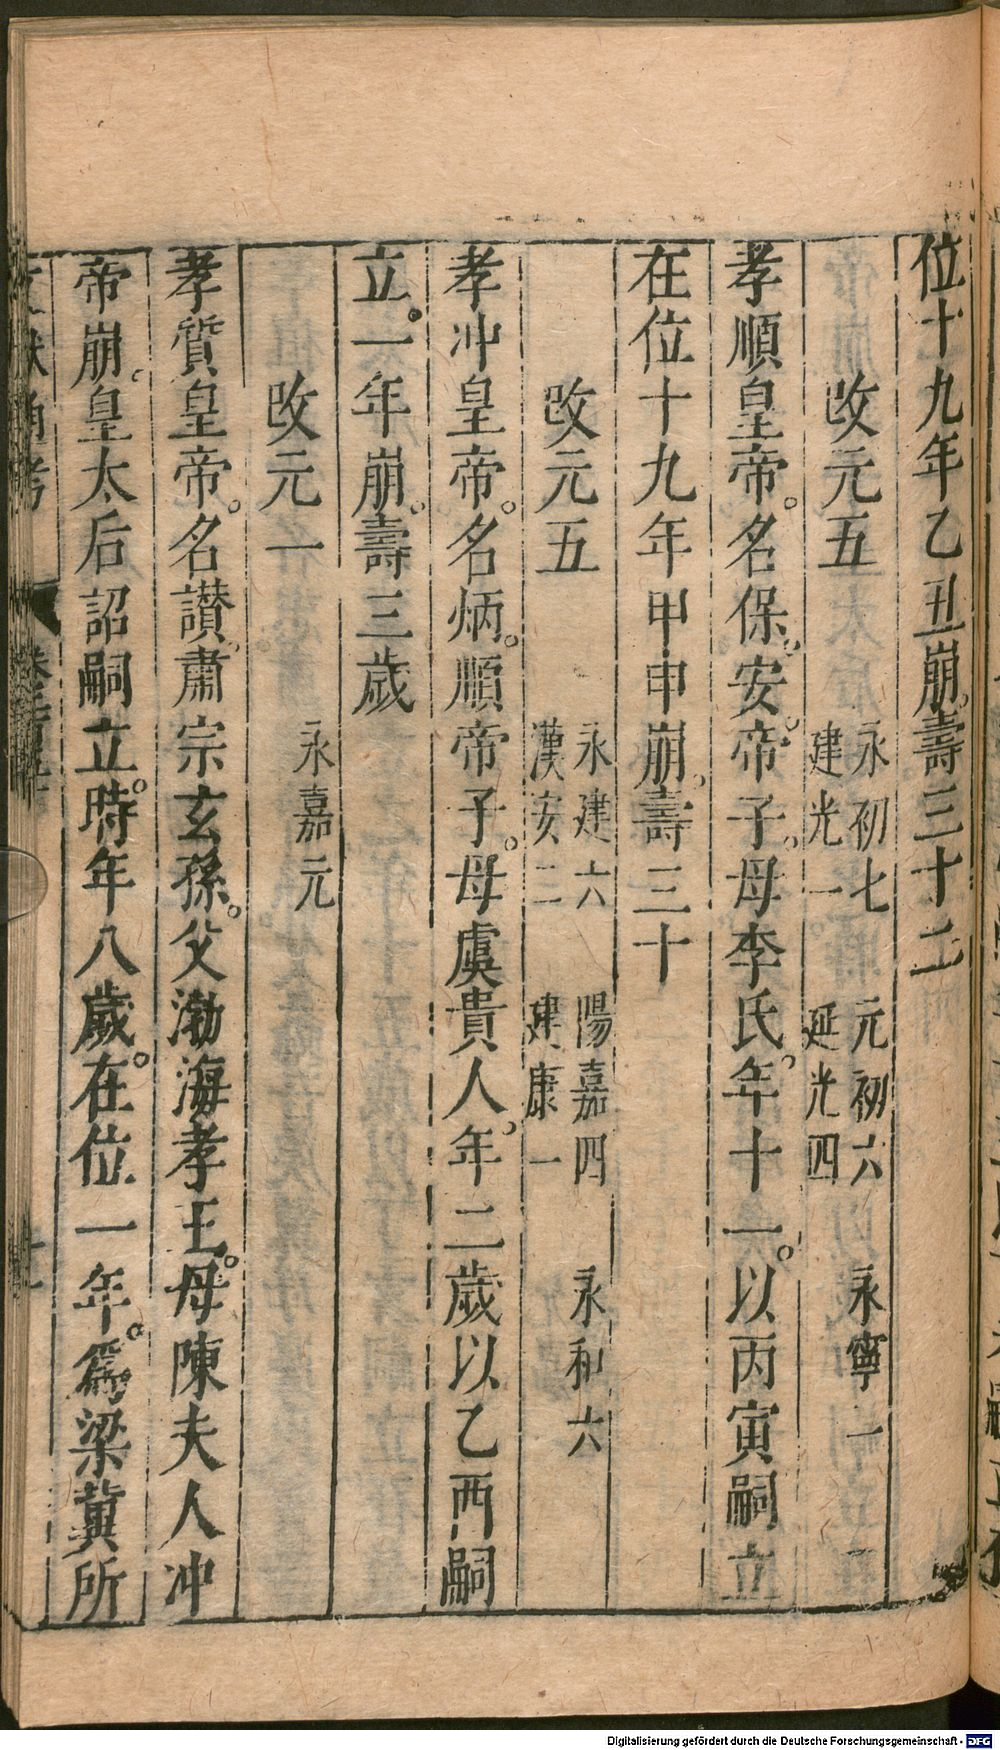 位十九年乙丑崩。壽三十二
改元五 永初七 元初六 永寧一
建光一 延光四
孝順皇帝。名保。安帝子。母李氏。年十一。以丙寅嗣立
在位十九年甲申崩。壽三十
改元五 永建六 陽嘉四 永和六
漢安二 建康一
孝冲皇帝。名炳。順帝子。母虞貴人。年二歲以乙酉嗣
立。一年崩。壽三歲
改元一 永嘉元
孝質皇帝。名讃。肅宗玄孫。父渤海孝王。母陳夫人冲
帝崩。皇太后詔嗣立。時年八歲。在位一年。爲梁冀所
Digitalisierung gefördert durch die Deutsche Forschungsgemeinschaft - DFG